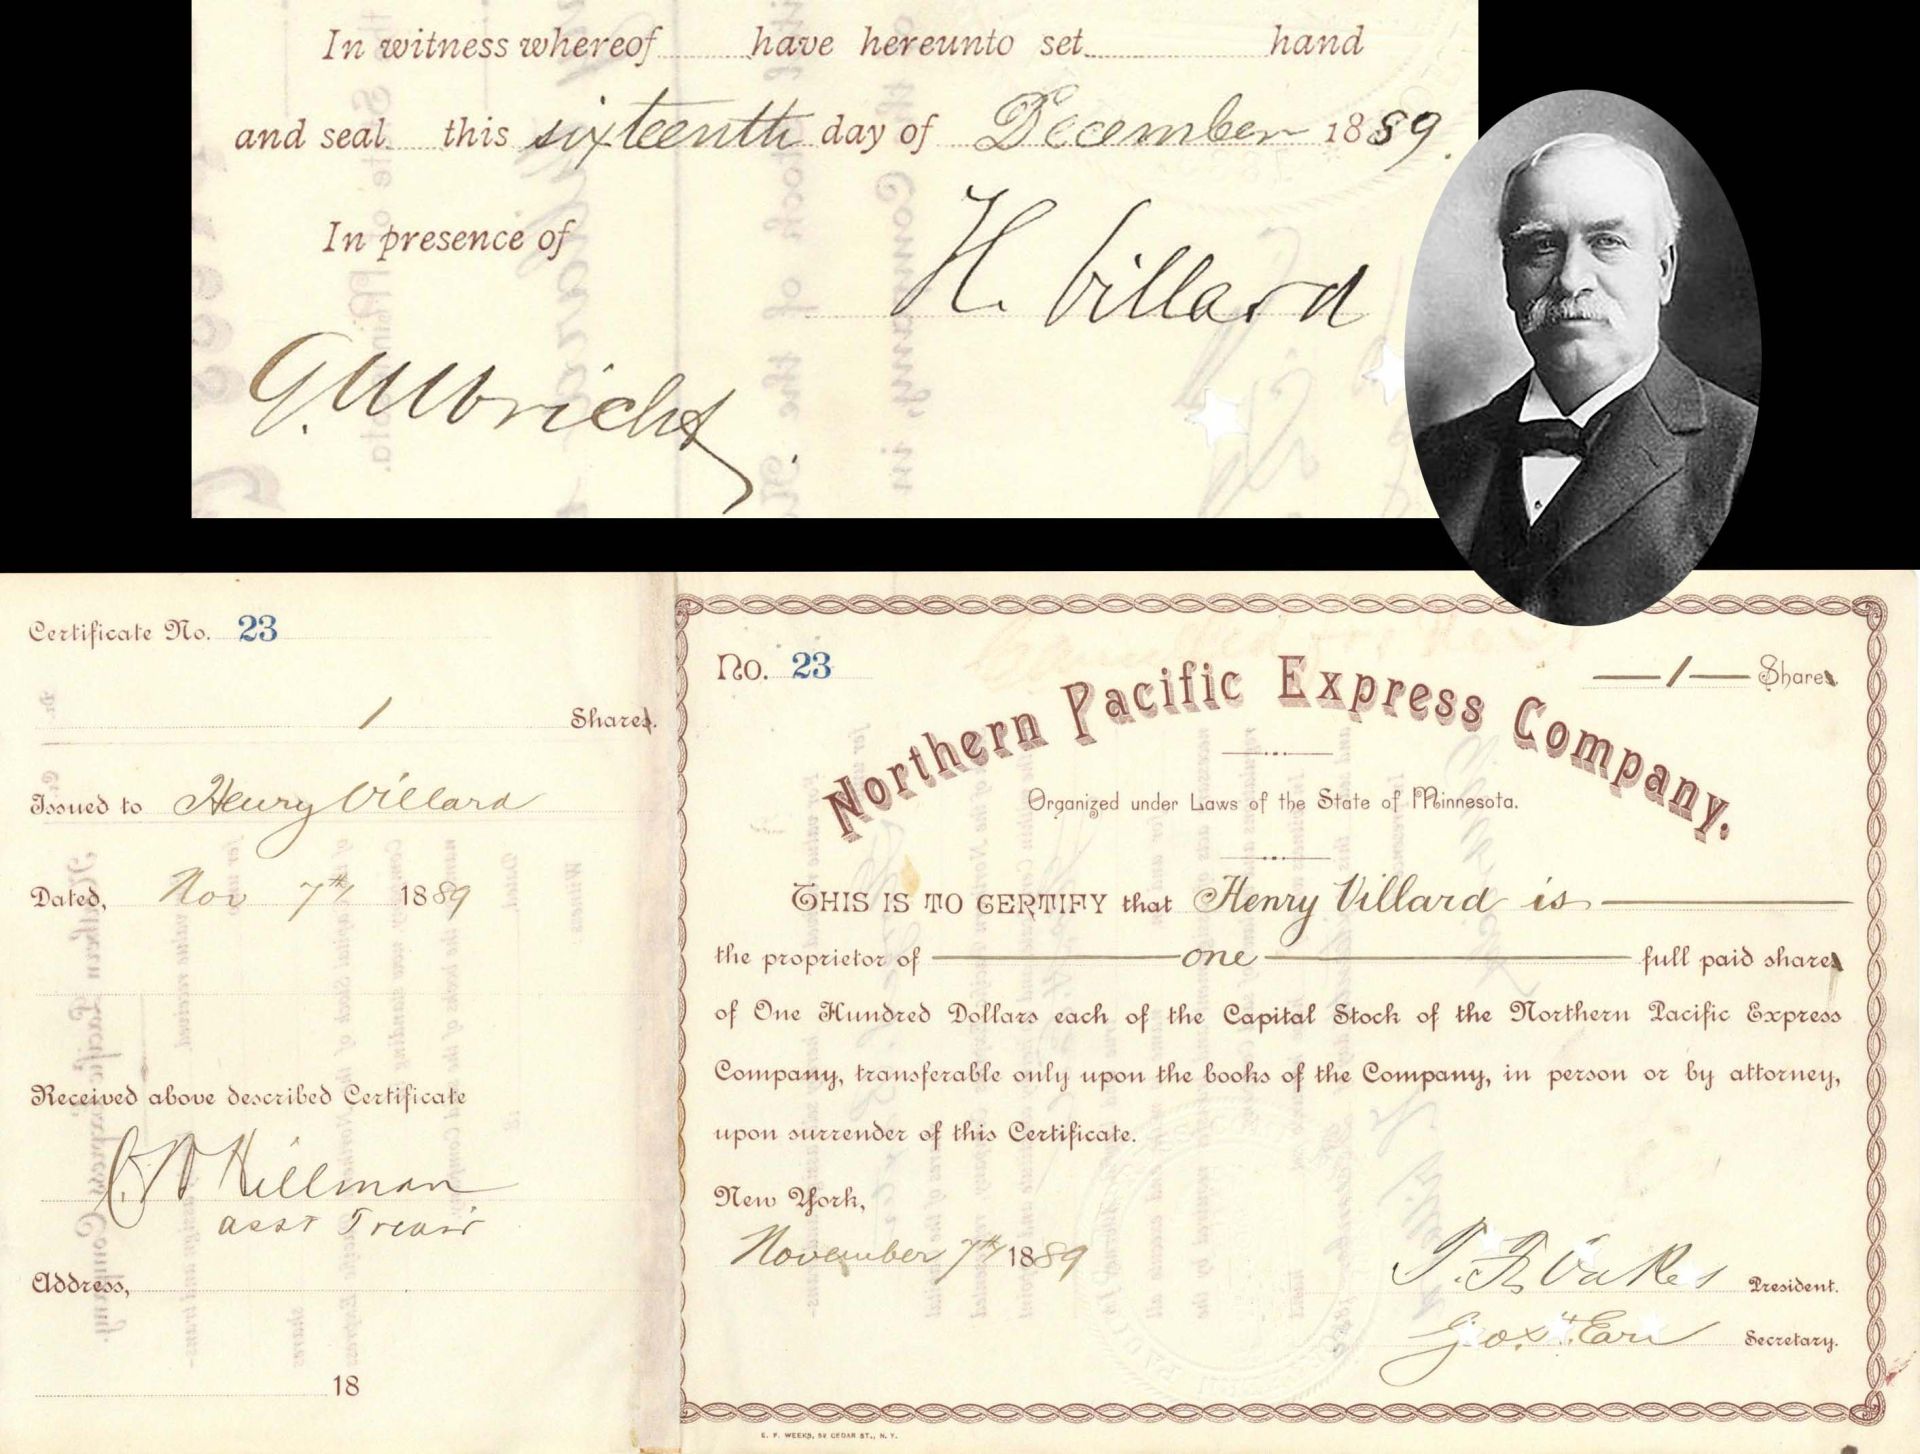 In witness whereof have hereunto set hand
and seal this sixteenth day of December 1889.
In presence of
H. Villard
G. Ulbricht
Certificate No. 23
1 Shares.
Issued to Henry Villard
Dated, Nov 7th 1889
Received above described Certificate
C. W. Hillman
asst Treasr
Address,
18
No. 23
1 Shares
Northern Pacific Express Company.
Organized under Laws of the State of Minnesota.
THIS IS TO CERTIFY that Henry Villard is
the proprietor of one full paid shares
of One Hundred Dollars each of the Capital Stock of the Northern Pacific Express
Company, transferable only upon the books of the Company, in person or by attorney,
upon surrender of this Certificate.
New York,
November 7th 1889
T. F. Oakes President.
Geo. H. Earl Secretary.
E. F. WEEKS, 52 CEDAR ST., N. Y.